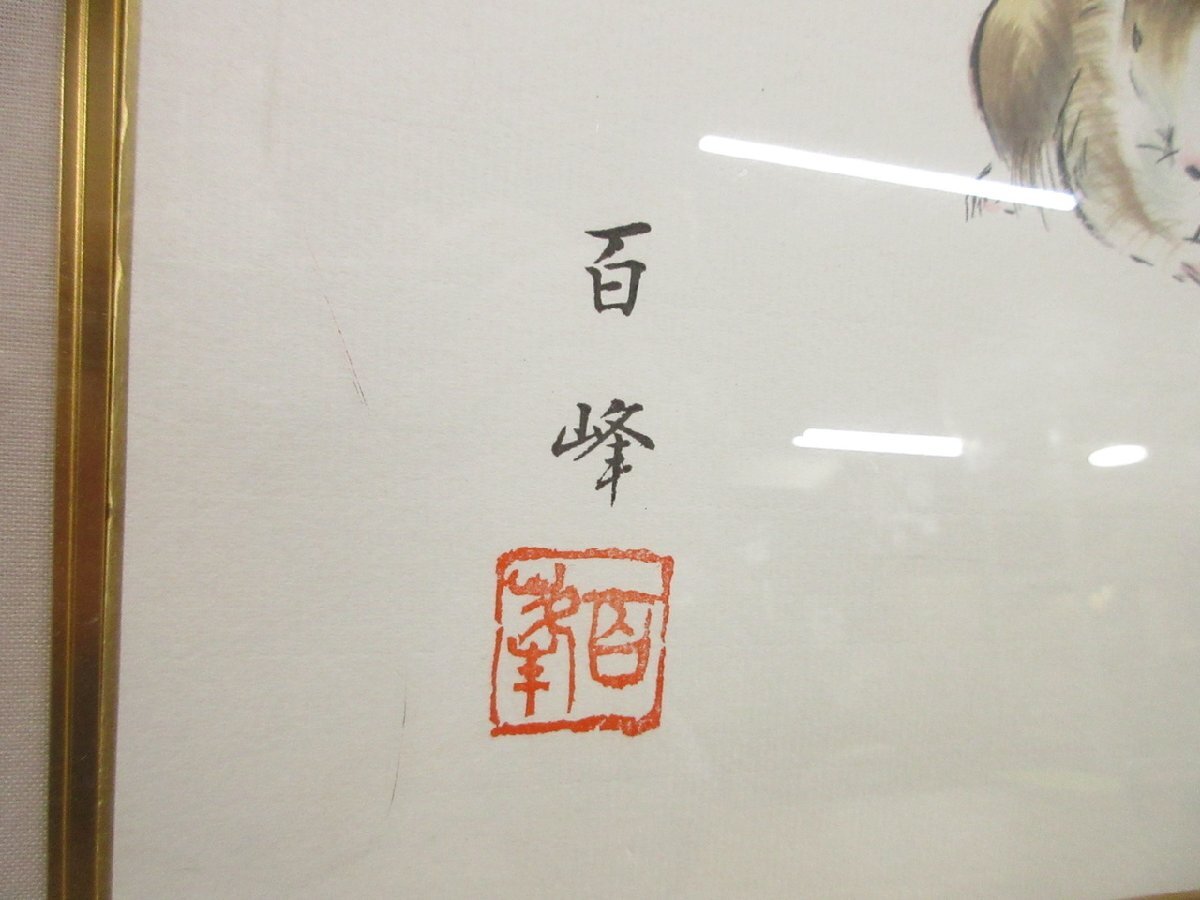 百峰
百峰